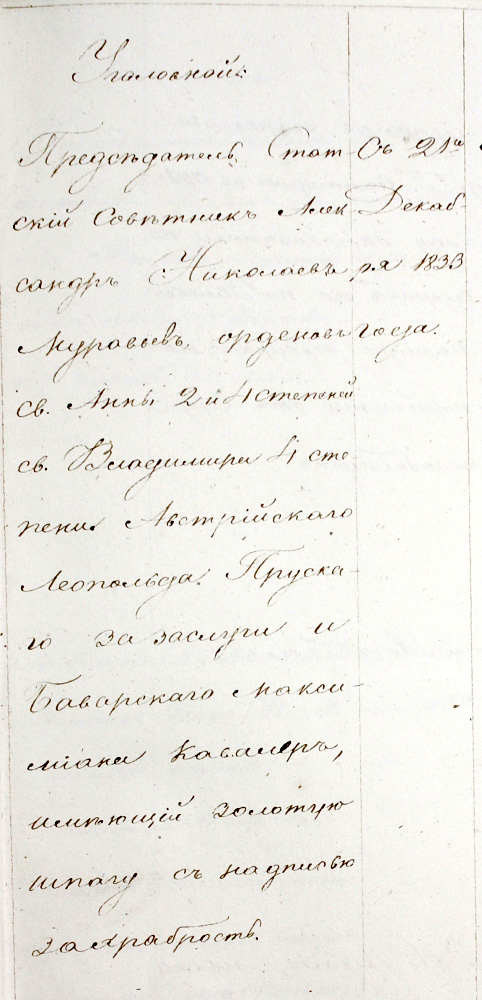 Уголовной:
Предсѣдатель Стат- Съ 21го
скій Совѣтникъ Алек- Декаб-
сандръ Николаевъ ря 1833
Муравьевъ, орденовъ года.
св. Анны 2 и 4 степеней
св. Владимира 4 сте-
пени Австрійскаго
Леопольда Пруска-
го за заслуги и
Баварскаго Макси-
миліана Кавалеръ,
имѣющій золотую
шпагу съ надписью
за храбрость.